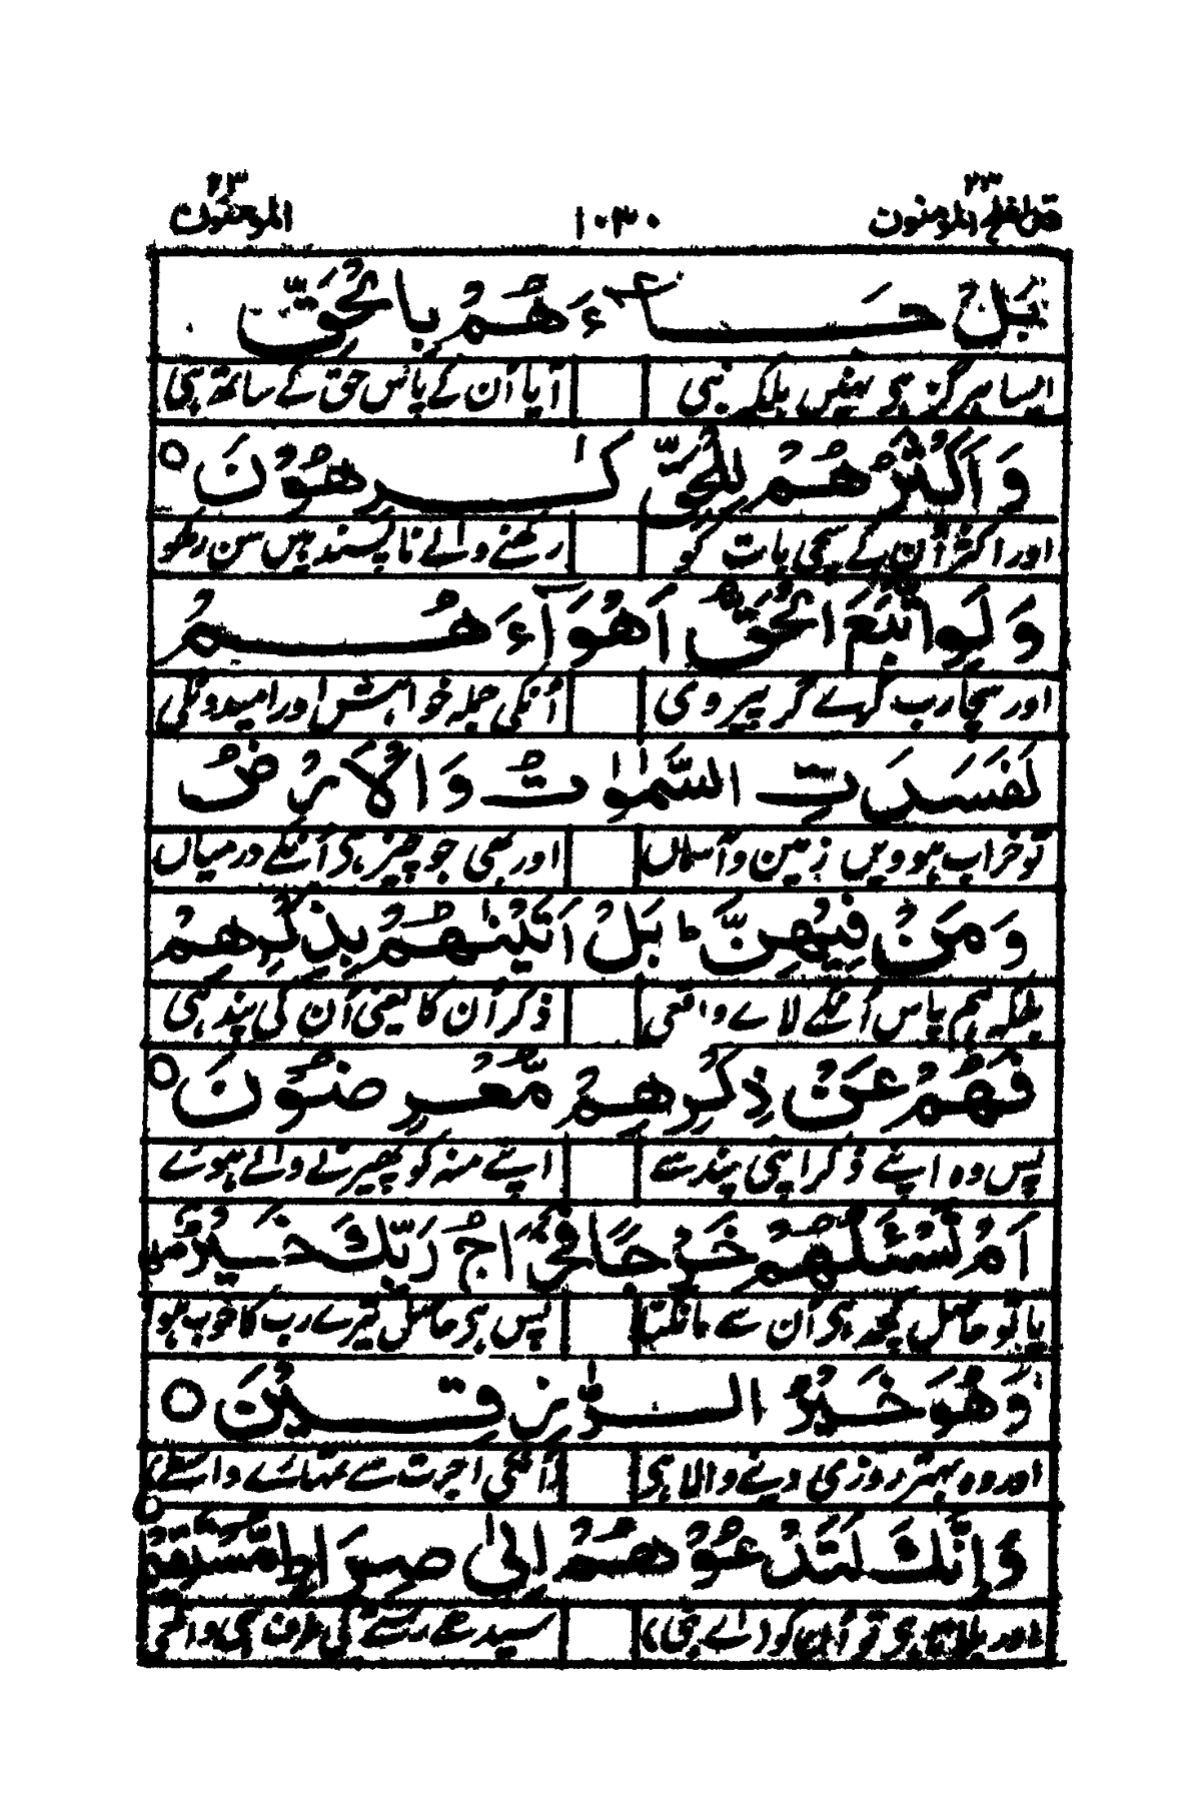 قد افلح المؤمنون ٢٣ ١٠٣٠ المؤمنون ٢٣
بَلْ جَآءَهُمْ بِالْحَقِّ
ایسا ہرگز ہی نہیں بلکہ نبی آیا اُن کے پاس حق کے ساتھ ہی
وَاَكْثَرُهُمْ لِلْحَقِّ كٰرِهُوْنَ ○
اور اکثر اُن کے سچی بات کو رکھنے والے ناپسند ہیں سن رکھو
وَلَوِاتَّبَعَ الْحَقُّ اَهْوَآءَهُمْ
اور سچا رب کہے گر پیروی اُنکی جملہ خواہش اور امید و
لَفَسَدَتِ السَّمٰوٰتُ وَالْاَرْضُ
تو خراب ہوویں زمین و آسماں اور بھی جو چیز ہی اُنکے درمیاں
وَمَنْ فِيْهِنَّ ؕ بَلْ اَتَيْنٰهُمْ بِذِكْرِهِمْ
بلکہ ہم پاس اُنکے لاے واقعی ذکر اُن کا یعنی اُن کی پند ہی
فَهُمْ عَنْ ذِكْرِهِمْ مُّعْرِضُوْنَ ○
پس وہ اپنے ذکر اپنی پند سے اپنے منہ کو پھیرنے والے ہوئے
اَمْ تَسْئَلُهُمْ خَرْجًا فَخَرَاجُ رَبِّكَ خَيْرٌ
یا تو حاصل کچھ ہی اُن سے مانگتا پس ہی حاصل تیرے رب کا خوب ہو
وَّهُوَ خَيْرُ الرّٰزِقِيْنَ ○
اور وہ بہتر روزی دینے والا ہی اُنکی اجرت سے تمہارے واسطے
وَاِنَّكَ لَتَدْعُوْهُمْ اِلٰى صِرَاطٍ مُّسْتَقِيْمٍ ○
اور ہی تو اُن کو (اے نبی) سیدھے رستے کی طرف ہی واقعی